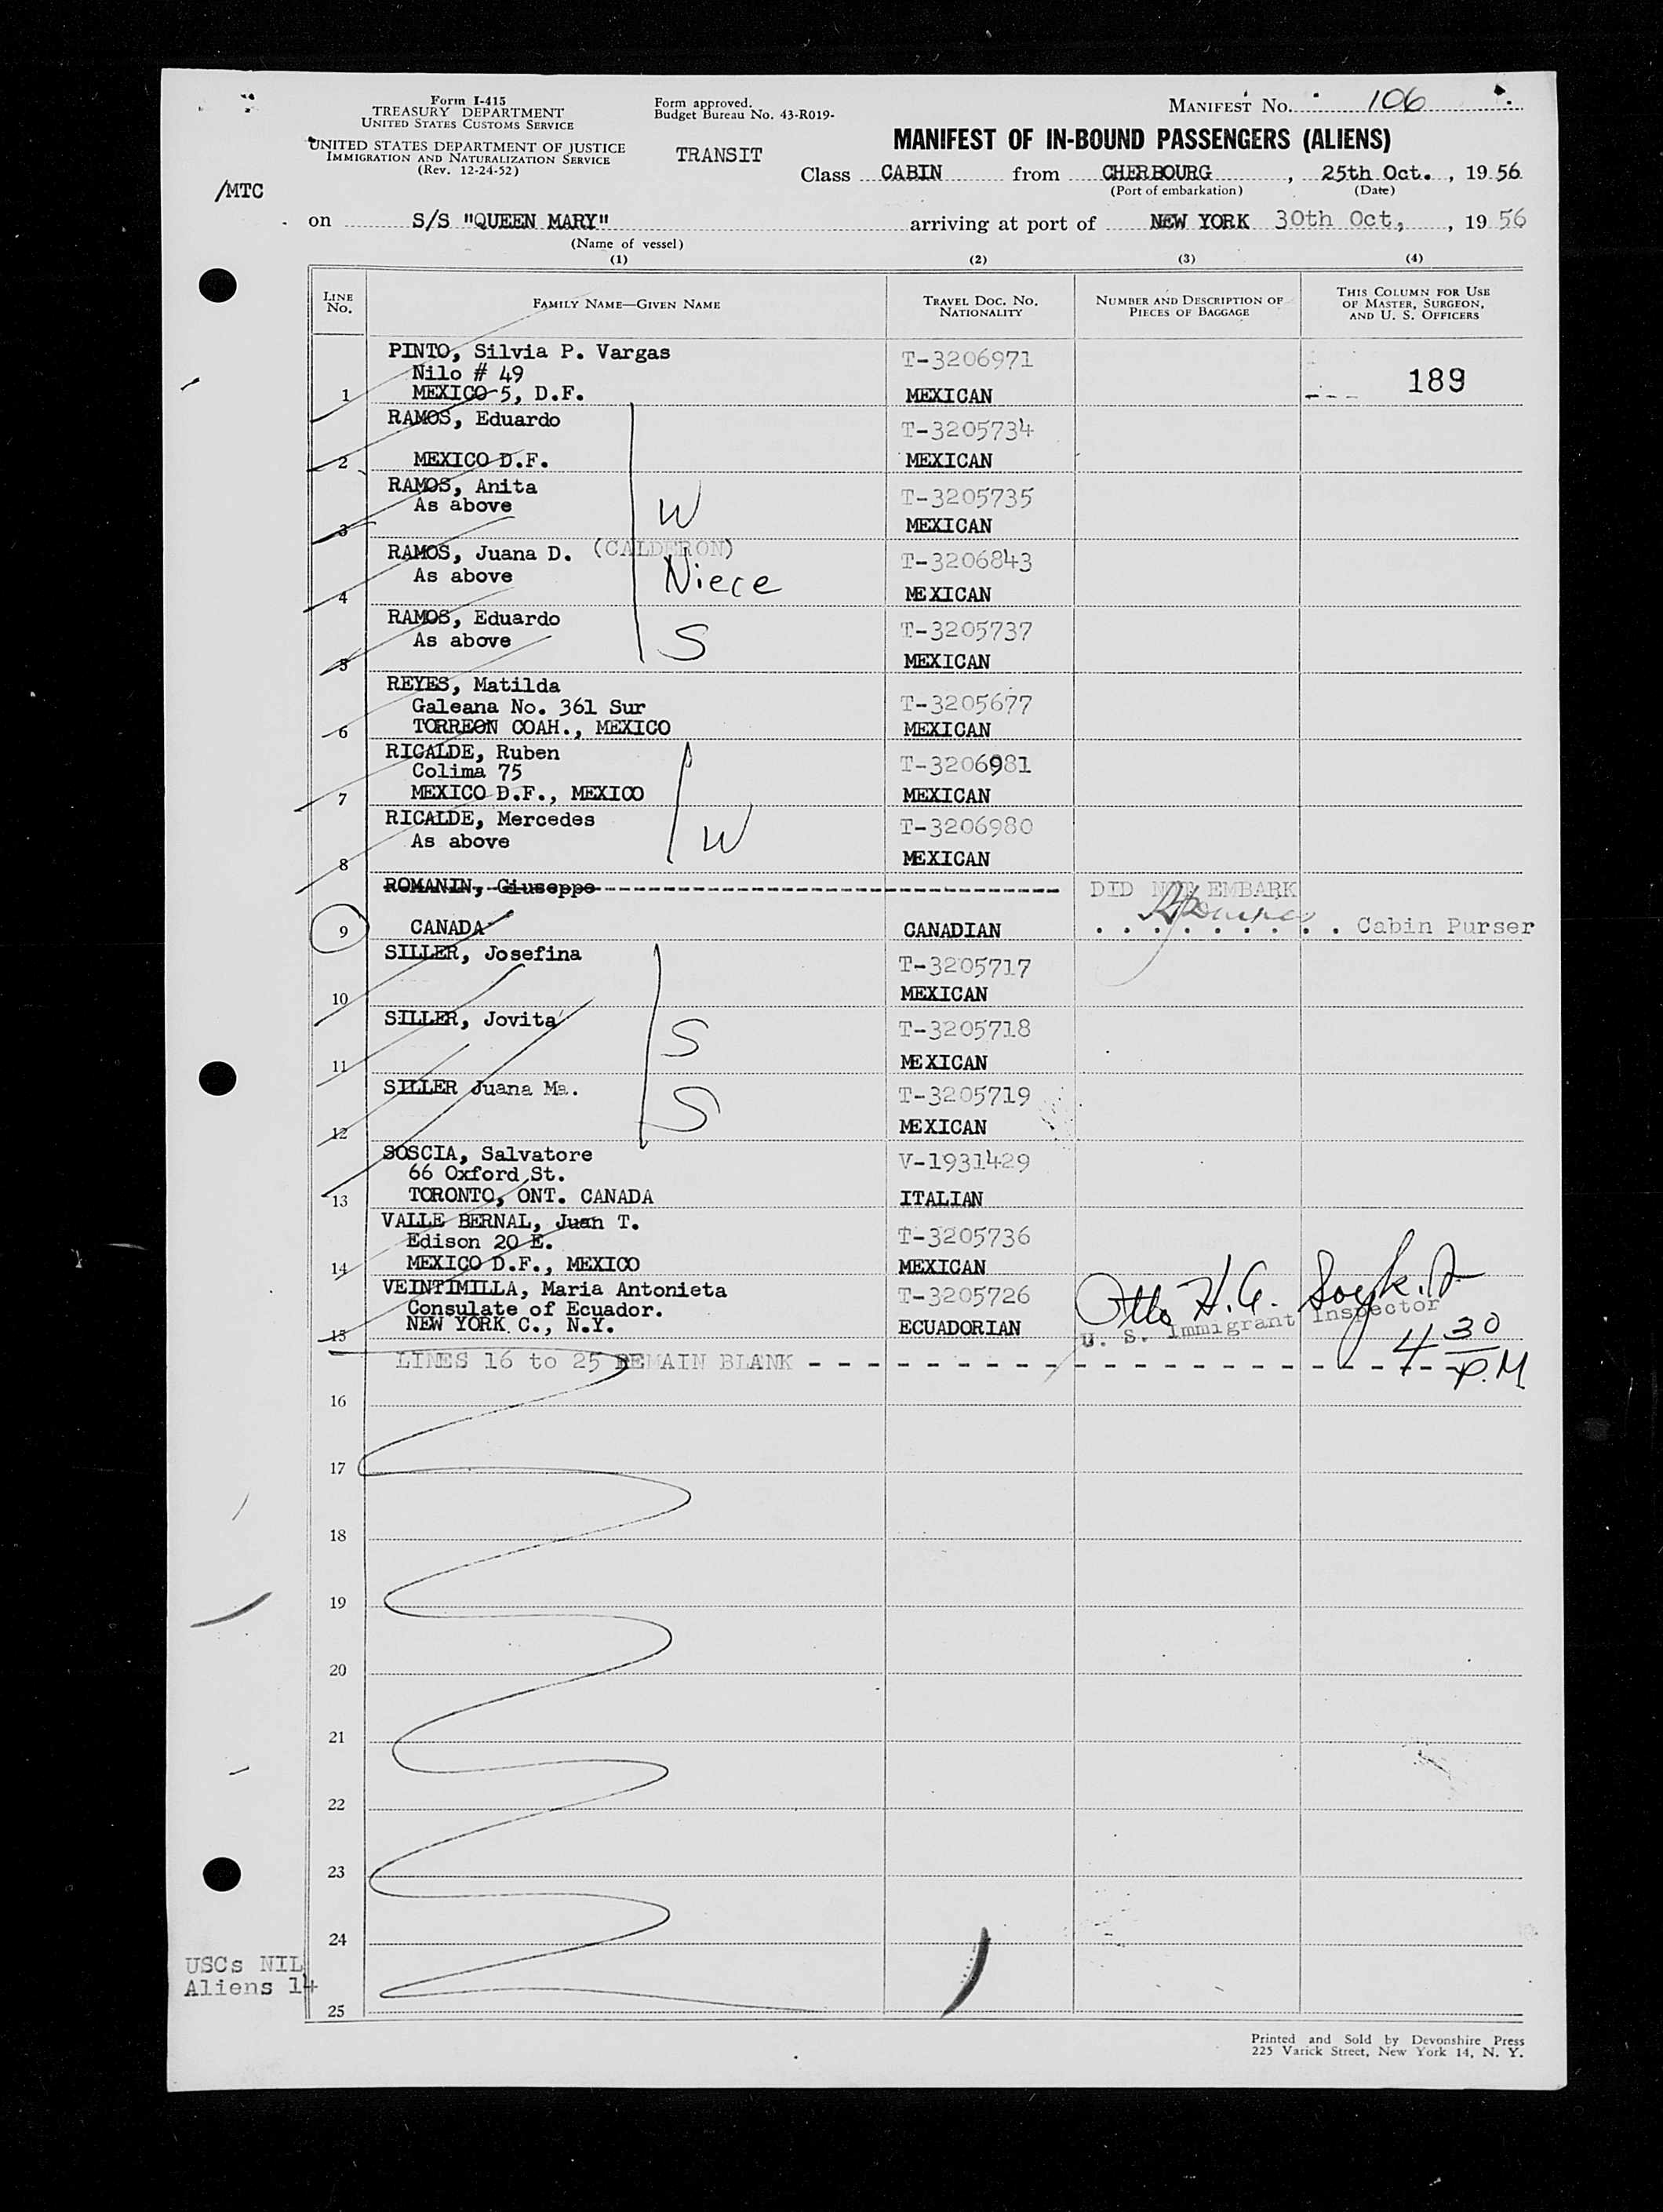 Form I-415
TREASURY DEPARTMENT
UNITED STATES CUSTOMS SERVICE
UNITED STATES DEPARTMENT OF JUSTICE
IMMIGRATION AND NATURALIZATION SERVICE
(Rev. 12-24-52)
Form approved.
Budget Bureau No. 43-R019-
TRANSIT
MANIFEST NO. 106
MANIFEST OF IN-BOUND PASSENGERS (ALIENS)
Class CABIN from CHERBOURG, 25th Oct., 1956
(Port of embarkation) (Date)
/MTC
on S/S "QUEEN MARY" arriving at port of NEW YORK 30th Oct, , 1956
(Name of vessel)
(1) (2) (3) (4)
LINE NO. FAMILY NAME—GIVEN NAME TRAVEL DOC. NO. NATIONALITY NUMBER AND DESCRIPTION OF PIECES OF BAGGAGE THIS COLUMN FOR USE OF MASTER, SURGEON, AND U. S. OFFICERS
PINTO, Silvia P. Vargas T-3206971
Nilo # 49 189
1 MEXICO 5, D.F. MEXICAN
RAMOS, Eduardo T-3205734
2 MEXICO D.F. MEXICAN
RAMOS, Anita T-3205735
As above W
3 MEXICAN
RAMOS, Juana D. (CALDERON) T-3206843
As above Niece
4 MEXICAN
RAMOS, Eduardo T-3205737
As above S
5 MEXICAN
REYES, Matilda
Galeana No. 361 Sur T-3205677
6 TORREON COAH., MEXICO MEXICAN
RICALDE, Ruben T-3206981
Colima 75
7 MEXICO D.F., MEXICO MEXICAN
RICALDE, Mercedes T-3206980
As above W
8 MEXICAN
ROMANIN, Giuseppe DID NOT EMBARK
9 CANADA CANADIAN Cabin Purser
SILLER, Josefina T-3205717
10 MEXICAN
SILLER, Jovita T-3205718
S
11 MEXICAN
SILLER Juana Ma. T-3205719
S
12 MEXICAN
SOSCIA, Salvatore V-1931429
66 Oxford St.
13 TORONTO, ONT. CANADA ITALIAN
VALLE BERNAL, Juan T. T-3205736
Edison 20 E.
14 MEXICO D.F., MEXICO MEXICAN
VEINTIMILLA, Maria Antonieta T-3205726
Consulate of Ecuador. Otto H.G.
15 NEW YORK C., N.Y. ECUADORIAN U. S. Immigrant Inspector
4 30 P.M
LINES 16 to 25 REMAIN BLANK
16
17
18
19
20
21
22
23
24
25
USCs NIL
Aliens 14
Printed and Sold by Devonshire Press
225 Varick Street, New York 14, N. Y.